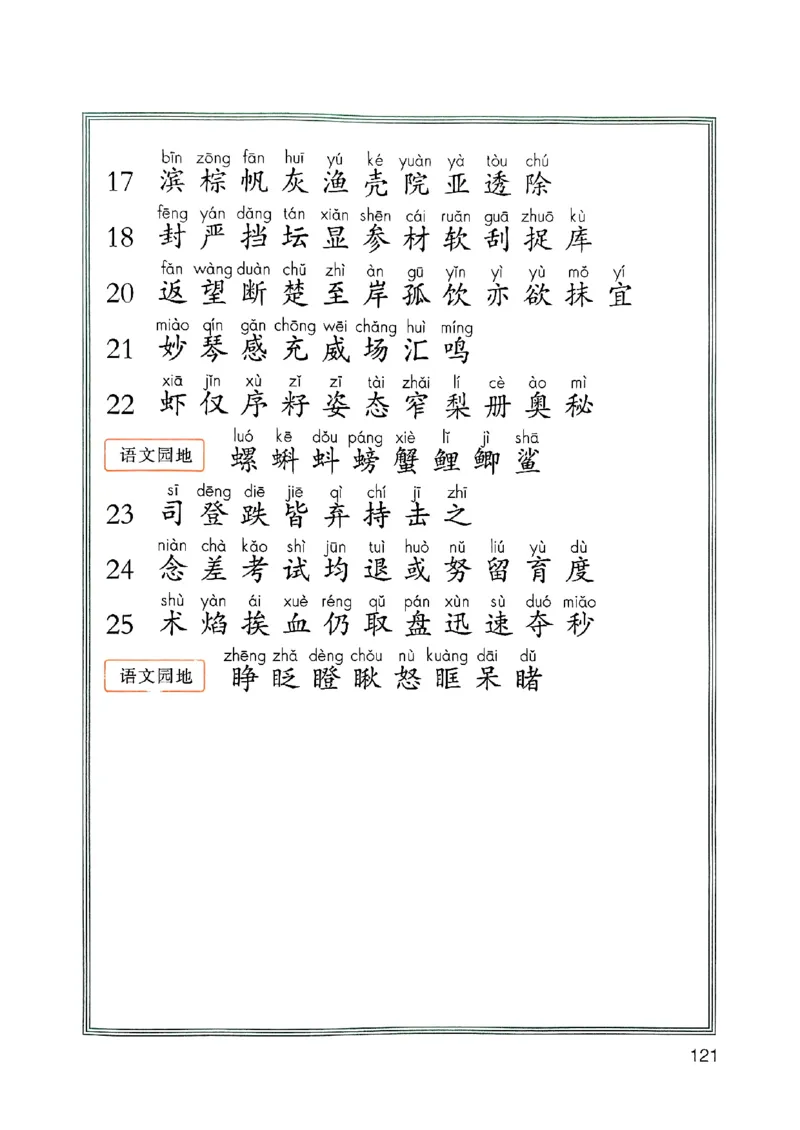 bīn zōng fān huī yú ké yuàn yà tòu chú
17 滨 棕 帆 灰 渔 壳 院 亚 透 除
fēng yán dǎng tán xiǎn shēn cái ruǎn guā zhuō kù
18 封 严 挡 坛 显 参 材 软 刮 捉 库
fǎn wàng duàn chǔ zhì àn gū yǐn yì yù mǒ yí
20 返 望 断 楚 至 岸 孤 饮 亦 欲 抹 宜
miào qín gǎn chōng wēi chǎng huì míng
21 妙 琴 感 充 威 场 汇 鸣
xiā jǐn xù zǐ zī tài zhǎi lí cè ào mì
22 虾 仅 序 籽 姿 态 窄 梨 册 奥 秘
luó kē dǒu páng xiè lǐ jì shā
语文园地 螺 蝌 蚪 螃 蟹 鲤 鲫 鲨
sī dēng diē jiē qì chí jī zhī
23 司 登 跌 皆 弃 持 击 之
niàn chà kǎo shì jūn tuì huò nǔ liú yù dù
24 念 差 考 试 均 退 或 努 留 育 度
shù yàn ái xuè réng qǔ pán xùn sù duó miǎo
25 术 焰 挨 血 仍 取 盘 迅 速 夺 秒
zhēng zhǎ dèng chǒu nù kuàng dāi dǔ
语文园地 睁 眨 瞪 瞅 怒 眶 呆 睹
121